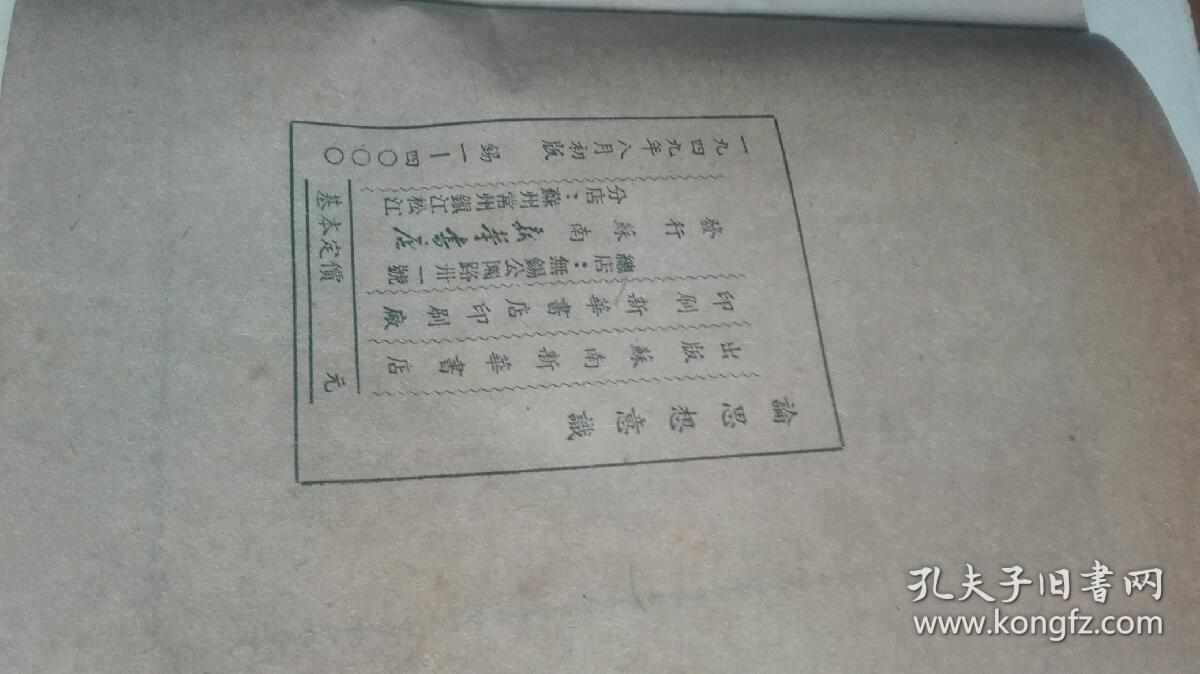 論思想意識
出版 蘇南新華書店
印刷 新華書店印刷廠
總店：無錫公園路卅一號
發行 蘇南新華書店
分店：蘇州常州鎮江松江
一九四九年八月初版 錫 一—四〇〇〇
基本定價 元
孔夫子旧书网
www.kongfz.com